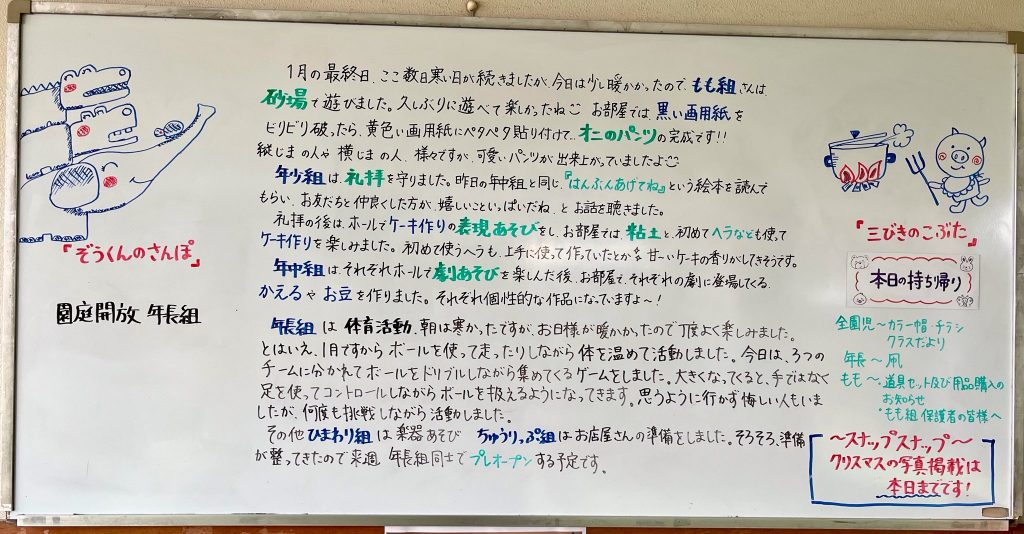 1月の最終日、ここ数日寒い日が続きましたが、今日は少し暖かかったので、もも組さんは、
砂場で遊びました。久しぶりに遊べて楽しかったね お部屋では、黒い画用紙を
ビリビリ破ったら、黄色い画用紙にペタペタ貼り付けて、オニのパンツの完成です!!
縦じまの人や横じまの人、様々ですが、可愛いパンツが出来上がっていましたよ
年少組は、礼拝を守りました。昨日の年中組と同じ、『はんぶんあげてね』という絵本を読んで
もらい、お友だちと仲良くした方が、嬉しいこといっぱいだね、とお話を聴きました。
礼拝の後は、ホールでケーキ作りの表現あそびをし、お部屋では、粘土と、初めてヘラなども使って
ケーキ作りを楽しみました。初めて使うヘラも、上手に使って作っていたとかな 甘〜いケーキの香りがしてきそうです。
年中組は、それぞれホールで劇あそびを楽しんだ後、お部屋で、それぞれの劇に登場してくる、
かえるやお豆を作りました。それぞれ個性的な作品になっていますよ〜!
年長組は体育活動、朝は寒かったですが、お日様が暖かかったので丁度よく楽しみました。
とはいえ、1月ですからボールを使って走ったりしながら体を温めて活動しました。今日は、3つの
チームに分かれてボールをドリブルしながら集めてくるゲームをしました。大きくなってくると、手ではなく
足を使ってコントロールしながらボールを扱えるようになってきます。思うように行かず悔しい人もいま
したが、何度も挑戦しながら活動しました。
その他ひまわり組は楽器あそび ちゅうりっぷ組はお店屋さんの準備をしました。そろそろ、準備
が整ってきたので来週、年長組同士でプレオープンする予定です。
『ぞうくんのさんぽ』
園庭開放 年長組
『三びきのこぶた』
本日の持ち帰り
全園児〜カラー帽・チラシ
クラスだより
年長〜凧
もも〜・道具セット及び用品購入の
お知らせ
・もも組保護者の皆様へ
〜スナップスナップ〜
クリスマスの写真掲載は
本日までです!